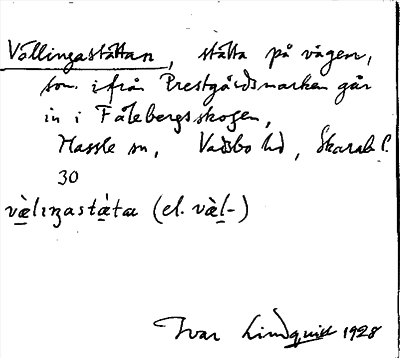 Vällingastättan, stätta på vägen,
som ifrån Prestgårdsmarken går
in i Fålebergsskogen,
Hassle sn, Vadsbo hd, Skarab l.
30
væ̀lıŋastæ̀ta (el. væ̀l-)
Ivar Lindquist 1928